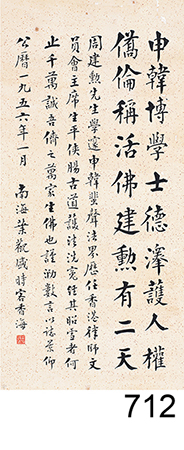 申韓博學士德澤護人權
儕倫稱活佛建勲有二天
周建勲先生學邃申韓蜚聲法界歷任香港律師文
員會主席生平俠腸古道護法洗寃經其昭雪者何
止千萬誠吾儕之萬家生佛也謹泐數言以誌景仰
公曆一九五六年一月 南海葉觀盛時客香海
712